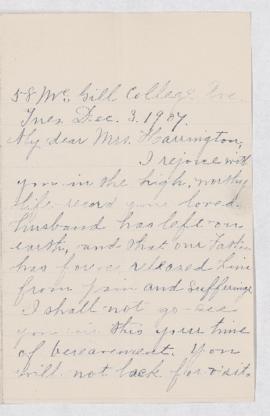 58 Mc. Gill College Ave.
Tues. Dec. 3. 1907.
My dear Mrs. Harrington,
I rejoice with
you in the high, worthy
life-record your loved
husband has left on
earth, and that our Father
has forever released him
from pain and suffering.
I shall not go see
you in this your time
of bereavement. You
will not lack for visit-